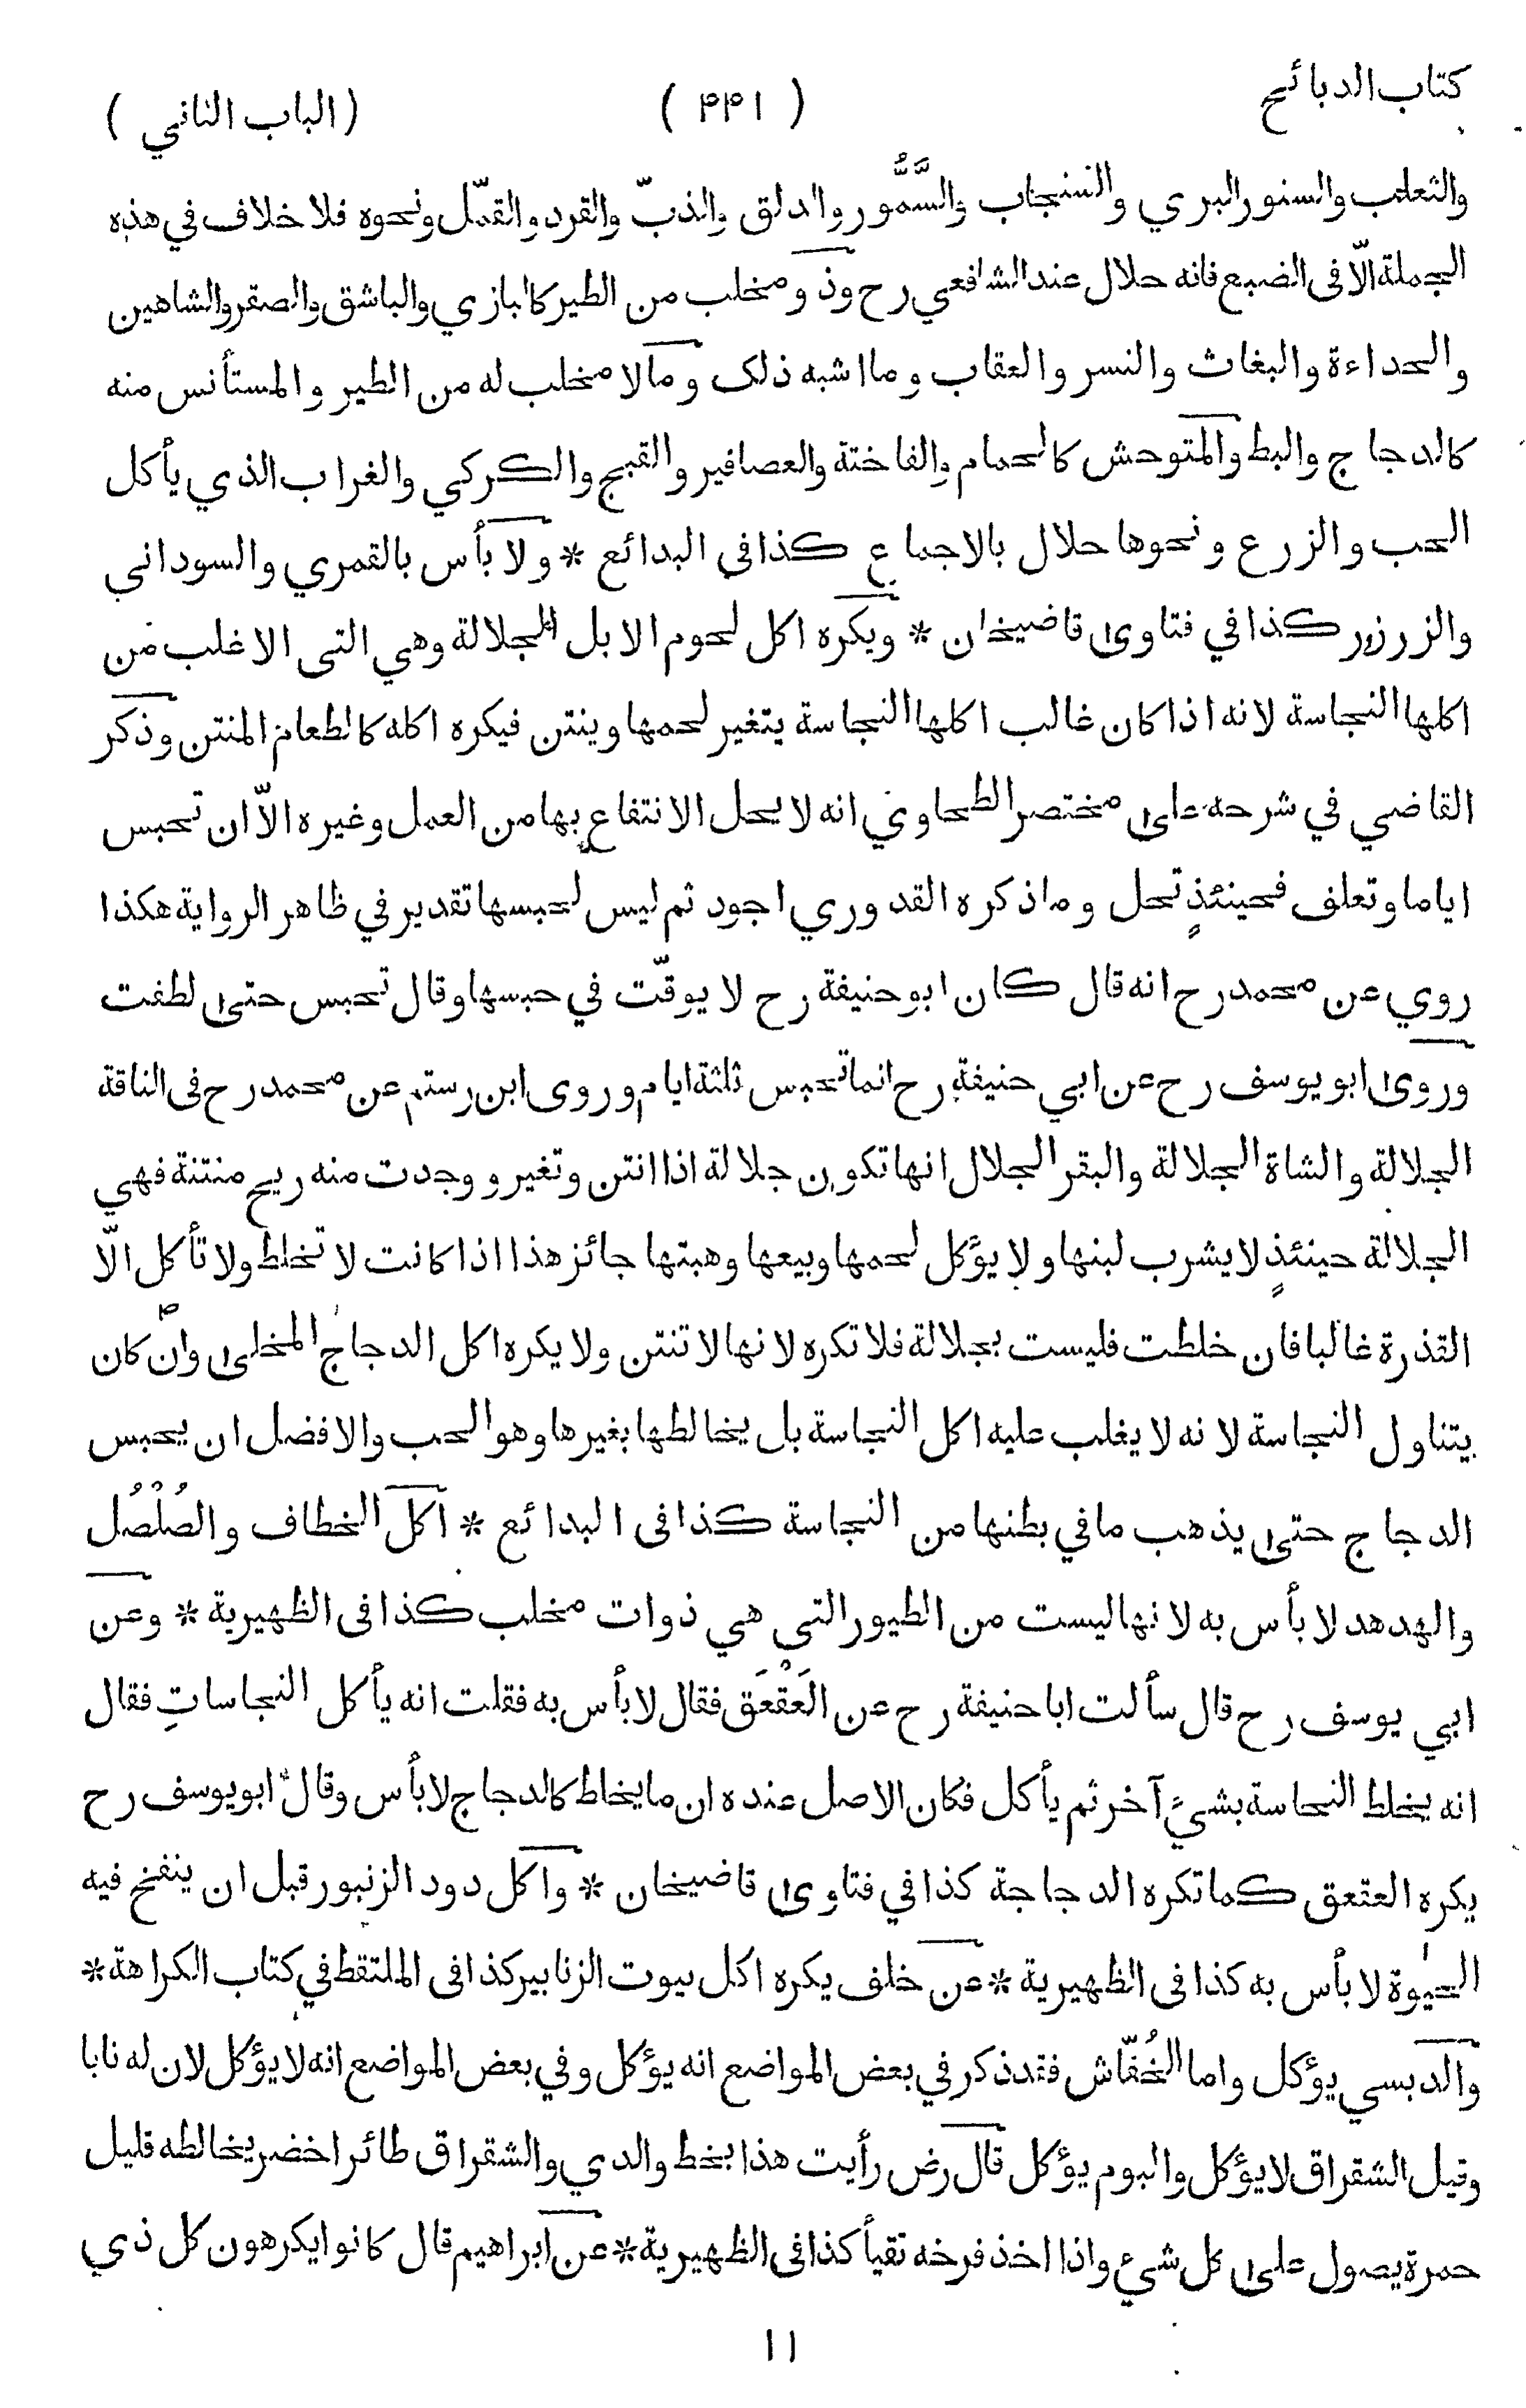 كتاب الدبائح ( ۴۴۱ ) ( الباب الثاني )
والثعلب والسنور البري والسنجاب والسَّمُّور والدلق والذبّ والقرد والقمّل ونحوه فلا خلاف في هذه
الجملة الاّ فى الضبع فانه حلال عند الشافعي رح وذ و مخلب من الطير كالبازي والباشق والصقر والشاهين
والحداءة والبغاث والنسر والعقاب وما اشبه ذلك ومالا مخلب له من الطير والمستأنس منه
كالدجاج والبط والمتوحش كالحمام والفاختة والعصافير والقبج والكركي والغراب الذي يأكل
الحب والزرع ونحوها حلال بالاجماع كذا في البدائع * ولا بأس بالقمري والسوداني
والزرزر كذا في فتاوى قاضيخان * ويكره اكل لحوم الابل الجلالة وهي التى الاغلب من
اكلها النجاسة لانه اذا كان غالب اكلها النجاسة يتغير لحمها وينتن فيكره اكله كالطعام المنتن وذكر
القاضي في شرحه على مختصر الطحاوي انه لا يحل الانتفاع بها من العمل وغيره الاّ ان تحبس
اياما وتعلف فحينئذٍ تحل وماذكره القدوري اجود ثم ليس لحبسها تقدير في ظاهر الرواية هكذا
روي عن محمد رح انه قال كان ابو حنيفة رح لا يوقّت في حبسها وقال تحبس حتى لطفت
وروى ابو يوسف رح عن ابي حنيفة رح انما تحبس ثلثة ايام وروى ابن رستم عن محمد رح فى الناقة
الجلالة والشاة الجلالة والبقر الجلال انها تكون جلالة اذا انتن وتغير ووجدت منه ريح منتنة فهي
الجلالة حينئذٍ لا يشرب لبنها ولا يؤكل لحمها وبيعها وهبتها جائز هذا اذا كانت لا تخلط ولا تأكل الاّ
القذرة غالبا فان خلطت فليست بجلالة فلا تكره لانها لا تنتن ولا يكره اكل الدجاج المخلى وان كان
يتناول النجاسة لانه لا يغلب عليه اكل النجاسة بل يخالطها بغيرها وهو الحب والافضل ان يحبس
الدجاج حتى يذهب مافي بطنها من النجاسة كذا فى البدائع * اكل الخطاف والصُلْصُل
والهدهد لا بأس به لانها ليست من الطيور التى هي ذوات مخلب كذا فى الظهيرية * وعن
ابي يوسف رح قال سألت ابا حنيفة رح عن العَقْعَق فقال لا بأس به فقلت انه يأكل النجاساتِ فقال
انه يخلط النجاسة بشيءٍ آخر ثم يأكل فكان الاصل عنده ان ما يخلط كالدجاج لا بأس وقال ابو يوسف رح
يكره العقعق كما تكره الدجاجة كذا في فتاوى قاضيخان * واكل دود الزنبور قبل ان ينفخ فيه
الحيوة لا بأس به كذا فى الظهيرية * عن خلف يكره اكل بيوت الزنابير كذا فى الملتقط في كتاب الكراهة *
والدبسي يؤكل واما الخُفّاش فقد ذكر في بعض المواضع انه يؤكل وفي بعض المواضع انه لا يؤكل لان له نابا
وقيل الشقراق لا يؤكل والبوم يؤكل قال رض رأيت هذا بخط والدي والشقراق طائر اخضر يخالطه قليل
حمرة يصول على كل شيء واذا اخذ فرخه تقيأ كذا فى الظهيرية * عن ابراهيم قال كانوا يكرهون كل ذي
١١